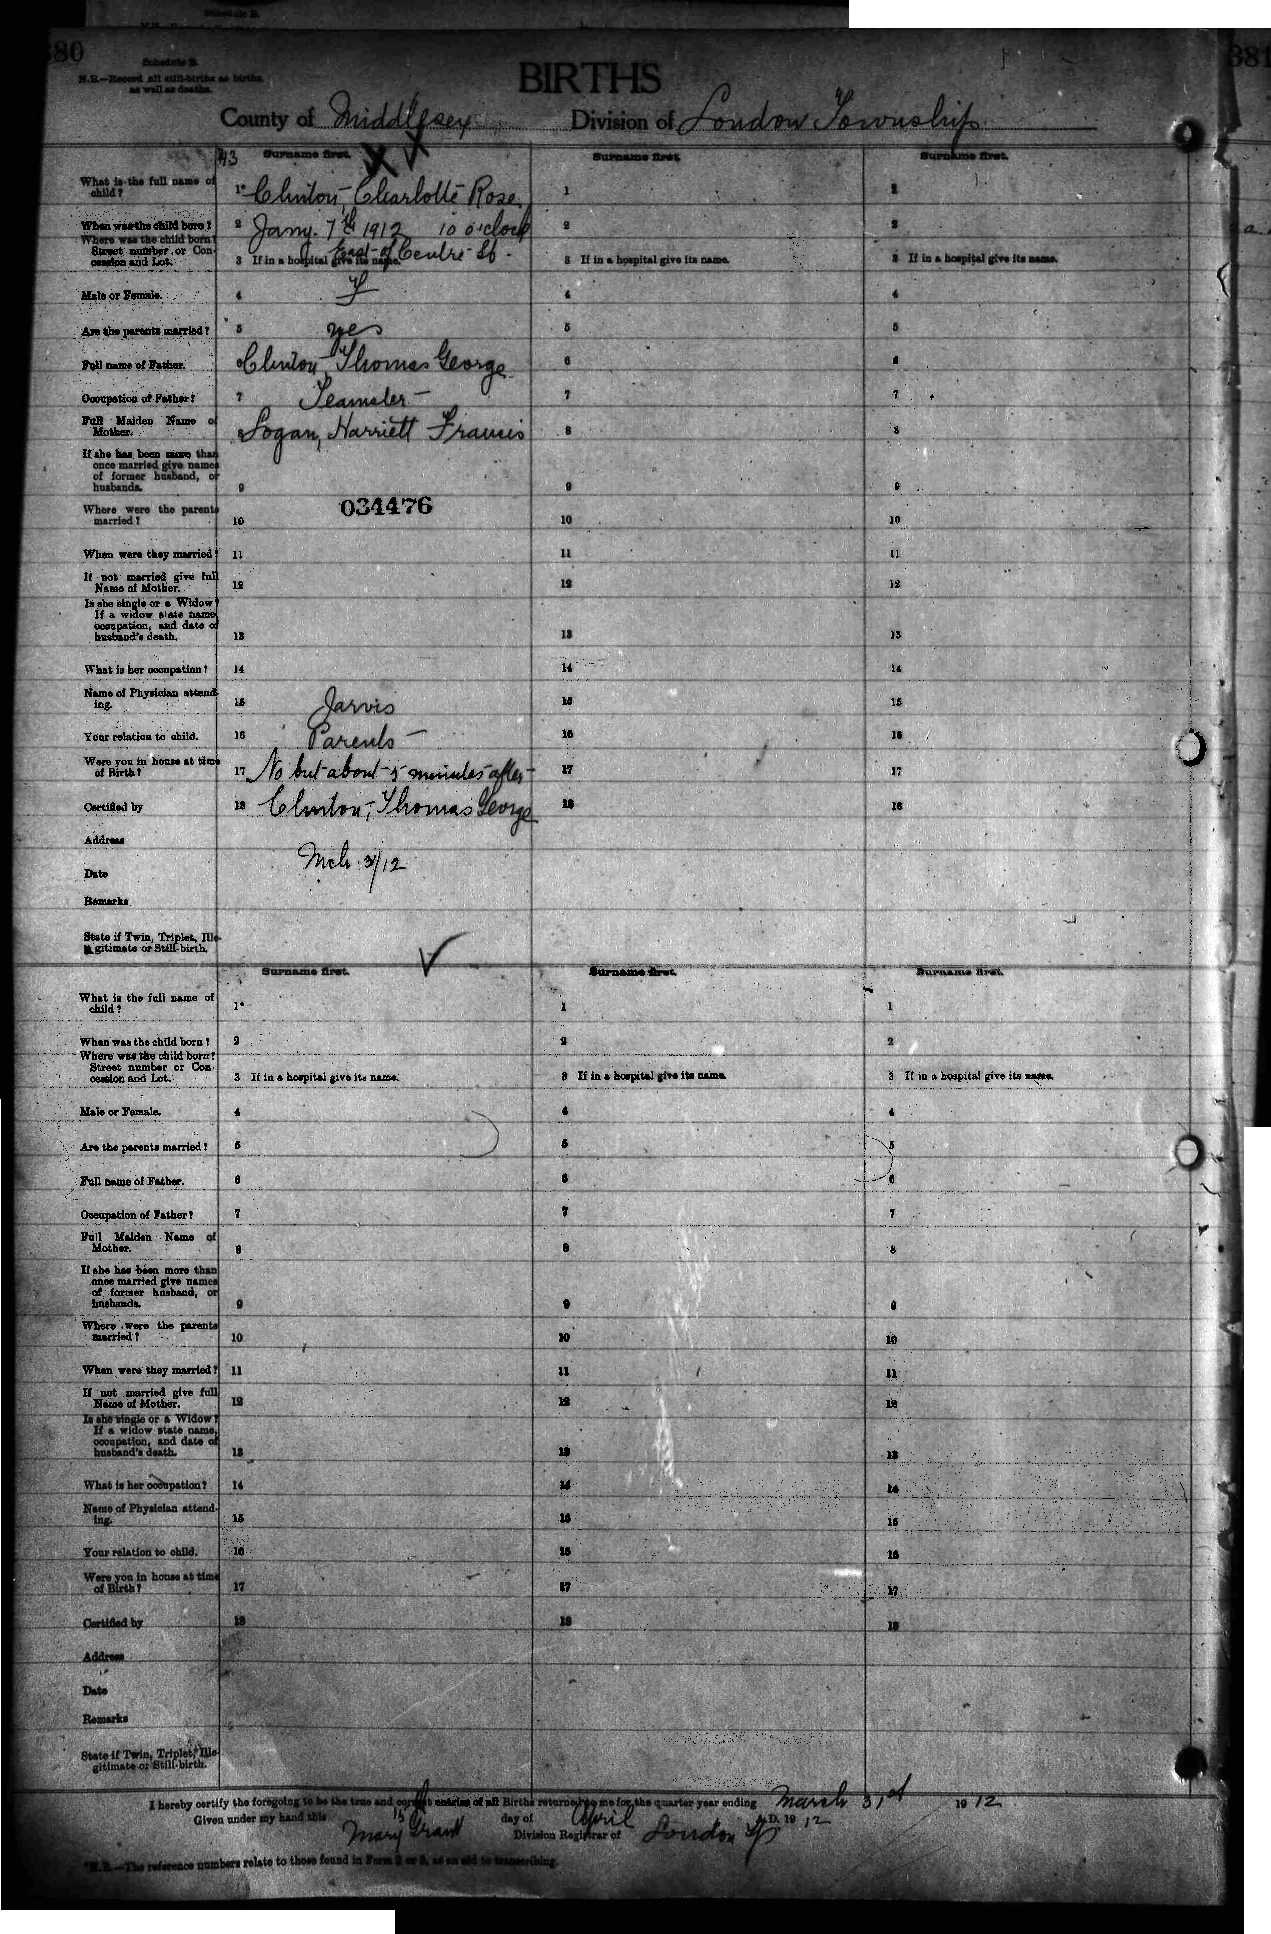 380
381
Schedule B.
N.B.—Record all still-births as births,
as well as deaths.
BIRTHS
County of Middlesex Division of London Township
43 Surname first. Surname first. Surname first.
What is the full name of
child? 1* Clinton, Charlotte Rose 1 1
When was the child born? 2 Jany. 7th 1912 10 o'clock 2 2
Where was the child born?
Street number or Con-
cession and Lot. 3 If in a hospital give its name. East of Centre St. 3 If in a hospital give its name. 3 If in a hospital give its name.
Male or Female. 4 F 4 4
Are the parents married? 5 yes 5 5
Full name of Father. 6 Clinton, Thomas George 6 6
Occupation of Father? 7 Teamster 7 7
Full Maiden Name of
Mother. 8 Logan, Harriett Francis 8 8
If she has been more than
once married give names
of former husband, or
husbands. 9 9 9
034476
Where were the parents
married? 10 10 10
When were they married? 11 11 11
If not married give full
Name of Mother. 12 12 12
Is she single or a Widow?
If a widow state name,
occupation, and date of
husband's death. 13 13 13
What is her occupation? 14 14 14
Name of Physician attend-
ing. 15 Jarvis 15 15
Your relation to child. 16 Parents 16 16
Were you in house at time
of Birth? 17 No but about 5 minutes after 17 17
Certified by 18 Clinton, Thomas George 18 18
Address
Date Mch 31/12
Remarks
State if Twin, Triplet, Ille-
gitimate or Still-birth.
Surname first. Surname first. Surname first.
What is the full name of
child? 1* 1 1
When was the child born? 2 2 2
Where was the child born?
Street number or Con-
cession and Lot. 3 If in a hospital give its name. 3 If in a hospital give its name. 3 If in a hospital give its name.
Male or Female. 4 4 4
Are the parents married? 5 5 5
Full name of Father. 6 6 6
Occupation of Father? 7 7 7
Full Maiden Name of
Mother. 8 8 8
If she has been more than
once married give names
of former husband, or
husbands. 9 9 9
Where were the parents
married? 10 10 10
When were they married? 11 11 11
If not married give full
Name of Mother. 12 12 12
Is she single or a Widow?
If a widow state name,
occupation, and date of
husband's death. 13 13 13
What is her occupation? 14 14 14
Name of Physician attend-
ing. 15 15 15
Your relation to child. 16 16 16
Were you in house at time
of Birth? 17 17 17
Certified by 18 18 18
Address
Date
Remarks
State if Twin, Triplet, Ille-
gitimate or Still-birth.
I hereby certify the foregoing to be the true and correct entries of all Births returned to me for the quarter year ending March 31st 1912
Given under my hand this 15 day of April A.D. 1912
Mary Grant Division Registrar of London Tp
*N.B.—The reference numbers relate to those found in Form 2 or 3, as an aid to transcribing.